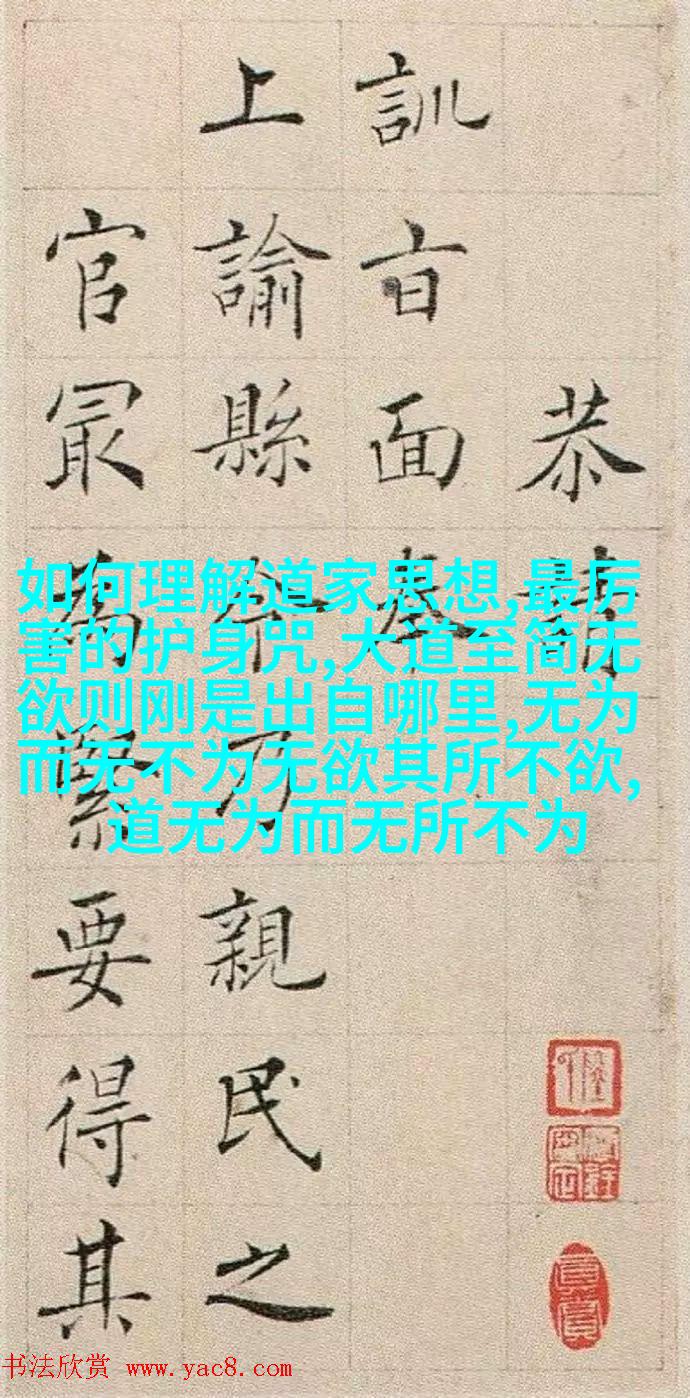 恭請
訓旨面奉
上諭縣令乃親民之
官最為緊要得其
如何理解道家思想,最厉
害的护身咒,大道至简无
欲则刚是出自哪里,无为
而无不为无欲其所不欲,
道无为而无所不为
书法欣赏 www.yac8.com